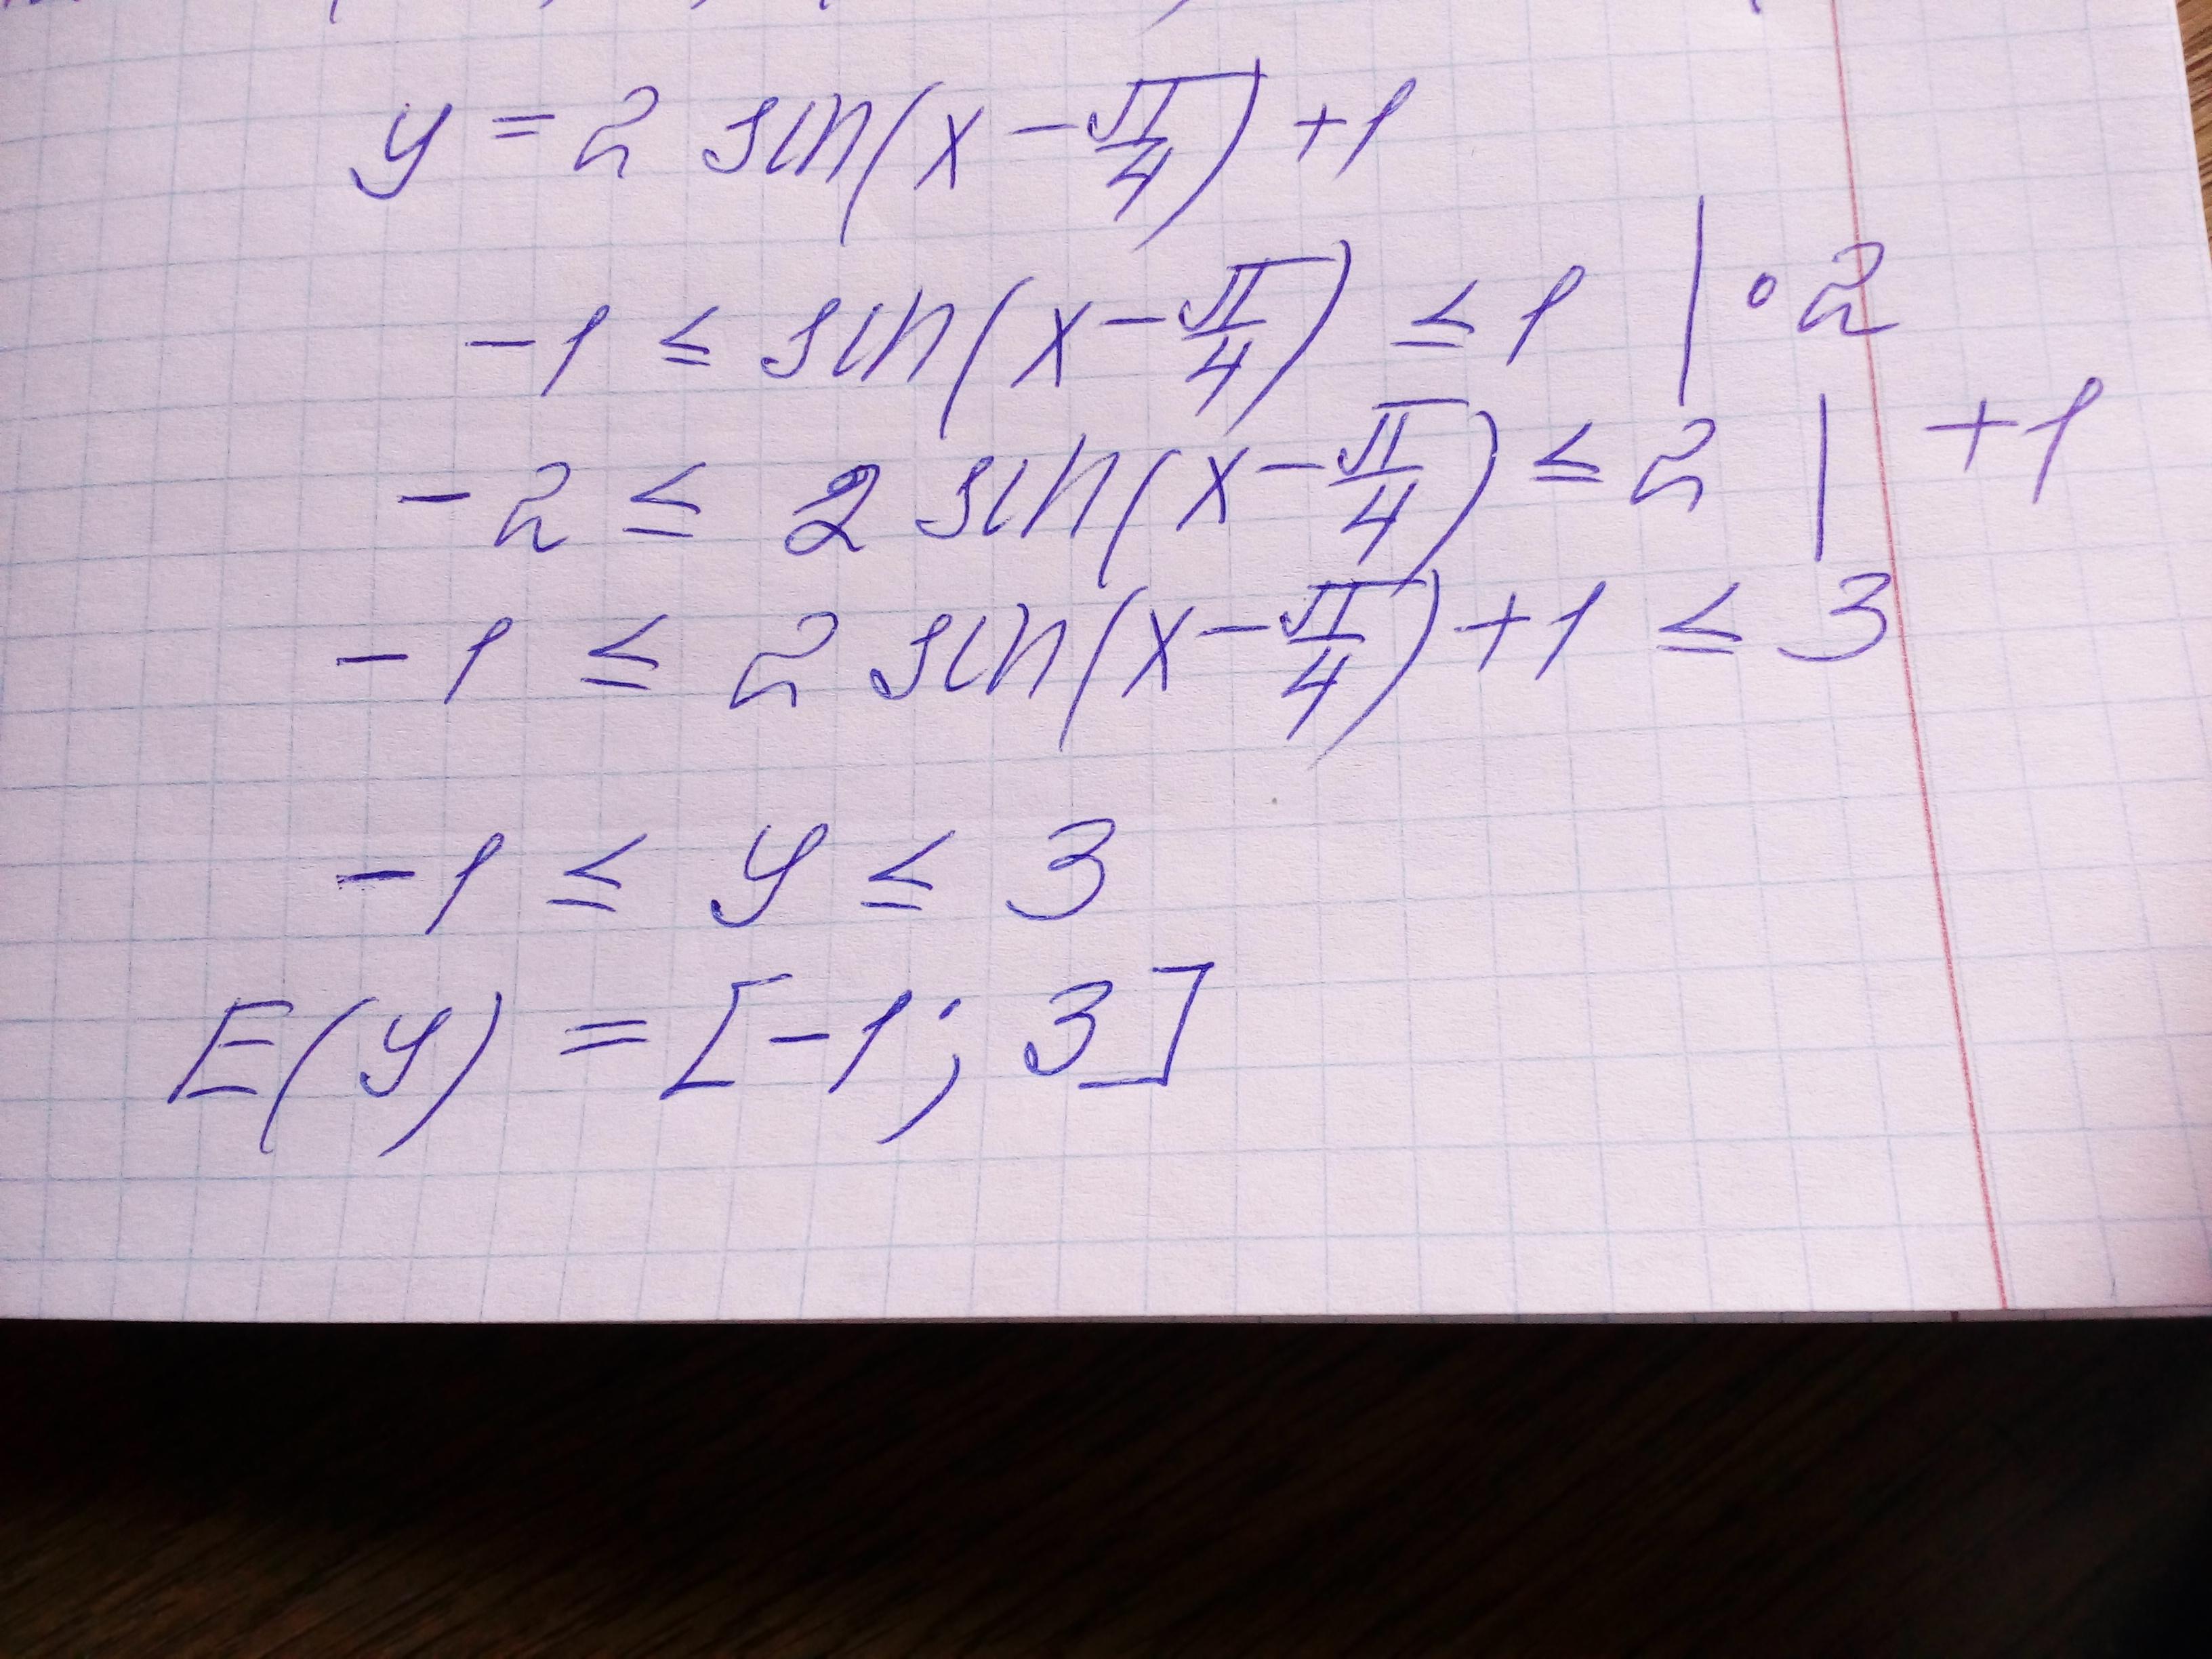 y = 2 sin(x - π/4) + 1
-1 ≤ sin(x - π/4) ≤ 1 | · 2
-2 ≤ 2 sin(x - π/4) ≤ 2 | +1
-1 ≤ 2 sin(x - π/4) + 1 ≤ 3
-1 ≤ y ≤ 3
E(y) = [-1; 3]